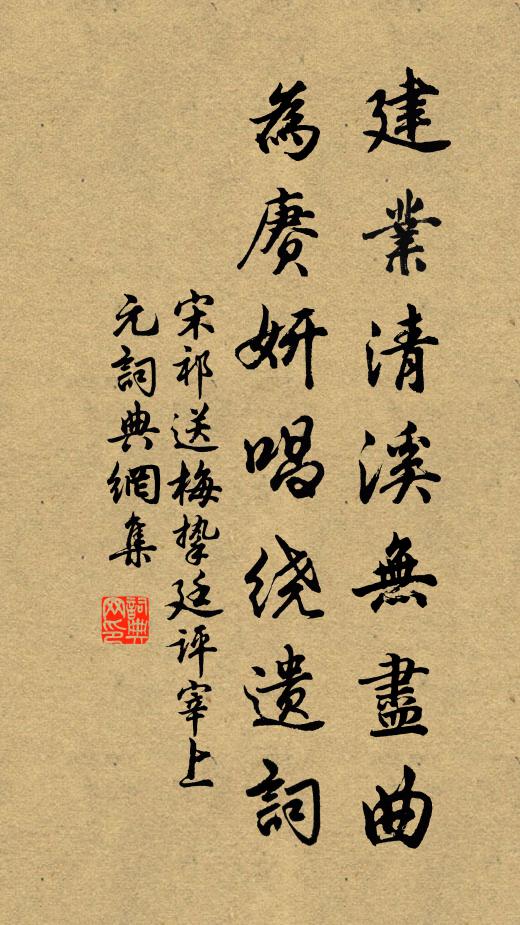 建業清溪無盡曲
為赓妍唱绕遺詞
宋祁送梅摯廷评宰上
元詞典網集
詞典网印